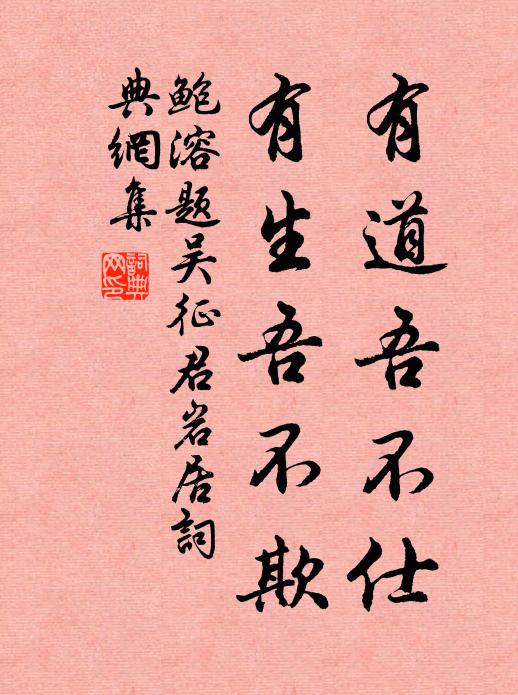 有道吾不仕
有生吾不欺
鲍溶题吴征君岩居詞
典網集
詞典網印